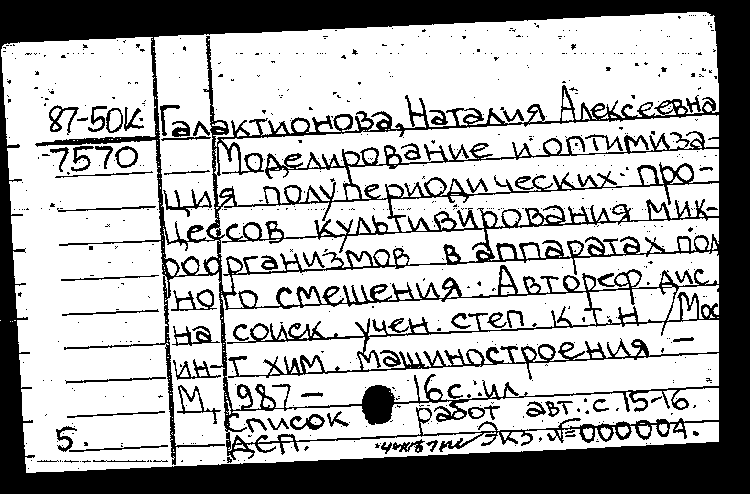 87-50К Галактионова, Наталия Алексеевна
7570 Моделирование и оптимиза-
ция полупериодических про-
цессов культивирования мик-
роорганизмов в аппаратах пол
ного смешения: Автореф. дис.
на соиск. учен. степ. к.т.н. / Мос
ин-т хим. машиностроения. –
М., 1987. – 16 с.: ил.
Список работ авт.: с. 15-16.
5. ДСП. Экз. №000004.